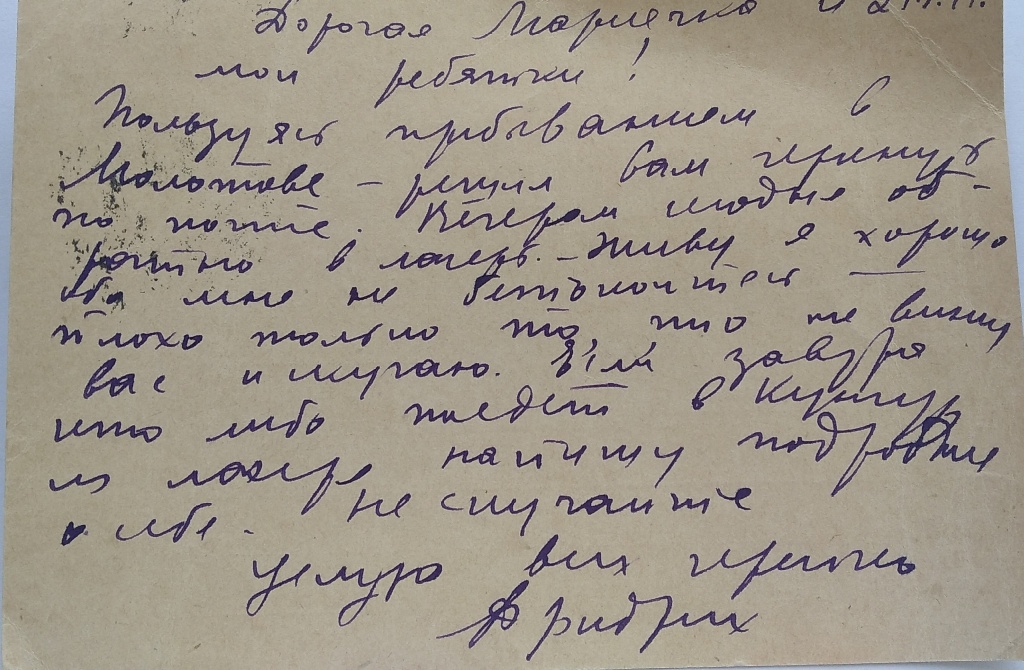 Дорогая Марусечка и
мои ребятки!
Пользуясь пребыванием в
Молотове – решил вам черкнуть
по почте. Вечером сегодня об-
ратно в лагерь. – Живу я хорошо
обо мне не беспокойтесь –
плохо только то, что не вижу
вас и скучаю. Если завтра
кто либо поедет в Кунгур
из лагеря напишу подробнее
о себе. Не скучайте
Целую всех крепко
Фридрих